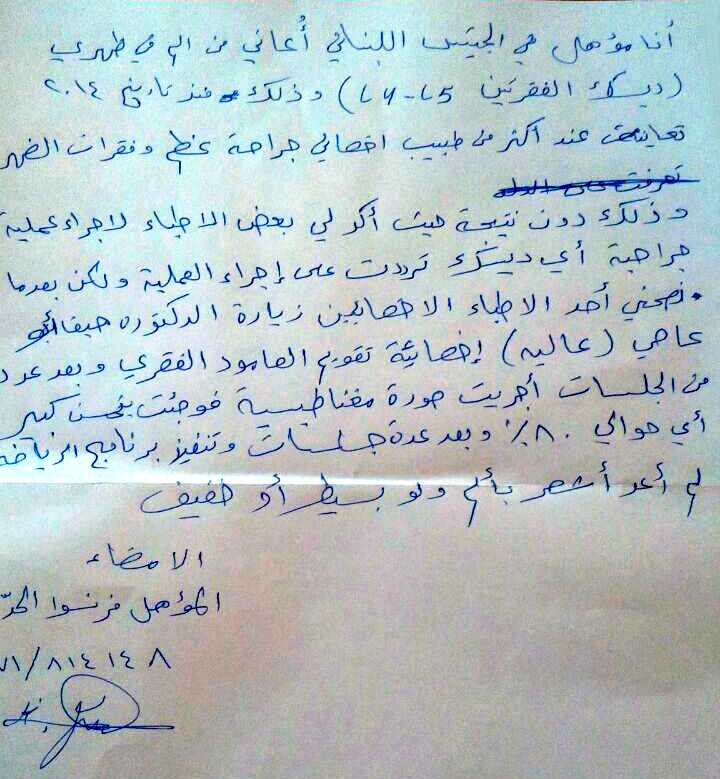 أنا مؤهل في الجيش اللبناني أُعاني من الم في ظهري
(ديسك الفقرتين L4-L5) وذلك منذ تاريخ ٢٠١٤
تعاينت عند أكثر من طبيب اخصائي جراحة عظم وفقرات الضهر
وذلك دون نتيجة حيث أكد لي بعض الاطباء لاجراء عملية
جراحية أي ديسك ترددت على إجراء العملية ولكن بعدما
نصحني أحد الاطباء الاخصائيين زيارة الدكتوره هيفا أبو
عاصي (عاليه) إخصائية تقويم العامود الفقري وبعد عدد
من الجلسات أجريت صورة مغناطيسية فوجئت بتحسن كبير
أي حوالي ٨٠٪ وبعد عدة جلسات وتنفيذ برنامج الرياضة
لم أعد أشعر بألم ولو بسيط أو خفيف
الامضاء
المؤهل فرنسوا الحدّ
٧١/٨١٤١٤٨